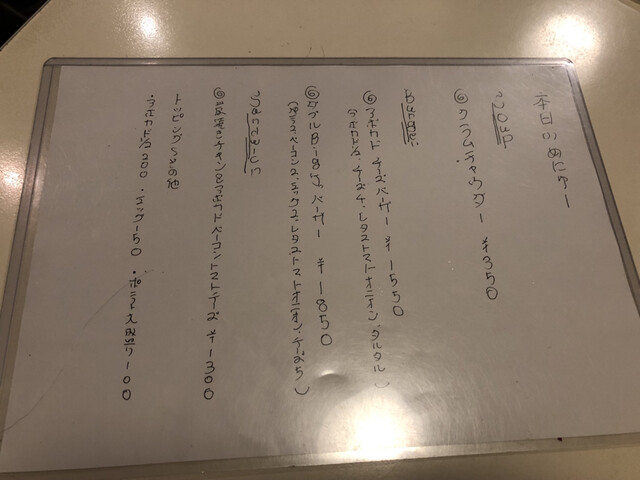 本日のめにゅー
SOUP
◎クラムチャウダー ¥350
Burger
◎アボカドチーズバーガー ¥1550
(アボカド½.チーズ4.レタストマトオニオン.タルタル)
◎ダブルBigバーガー ¥1850
(パティ2.ベーコン2.エッグ2.レタストマトオニオン.チーズ5)
Sandwich
◎照焼きチキン&アボカドベーコントマトチーズ ¥1300
トッピングその他
・アボカド½200 ・エッグ150 ・ポテト大盛り100